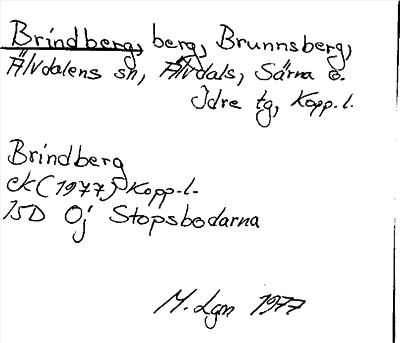 Brindberg, berg, Brunnsberg,
Älvdalens sn, Älvdals, Särna o.
Idre tg, Kopp.l.
Brindberg
ek (1977) Kopp-l-
15D 0j Stopsbodarna
M. Lgn 1977